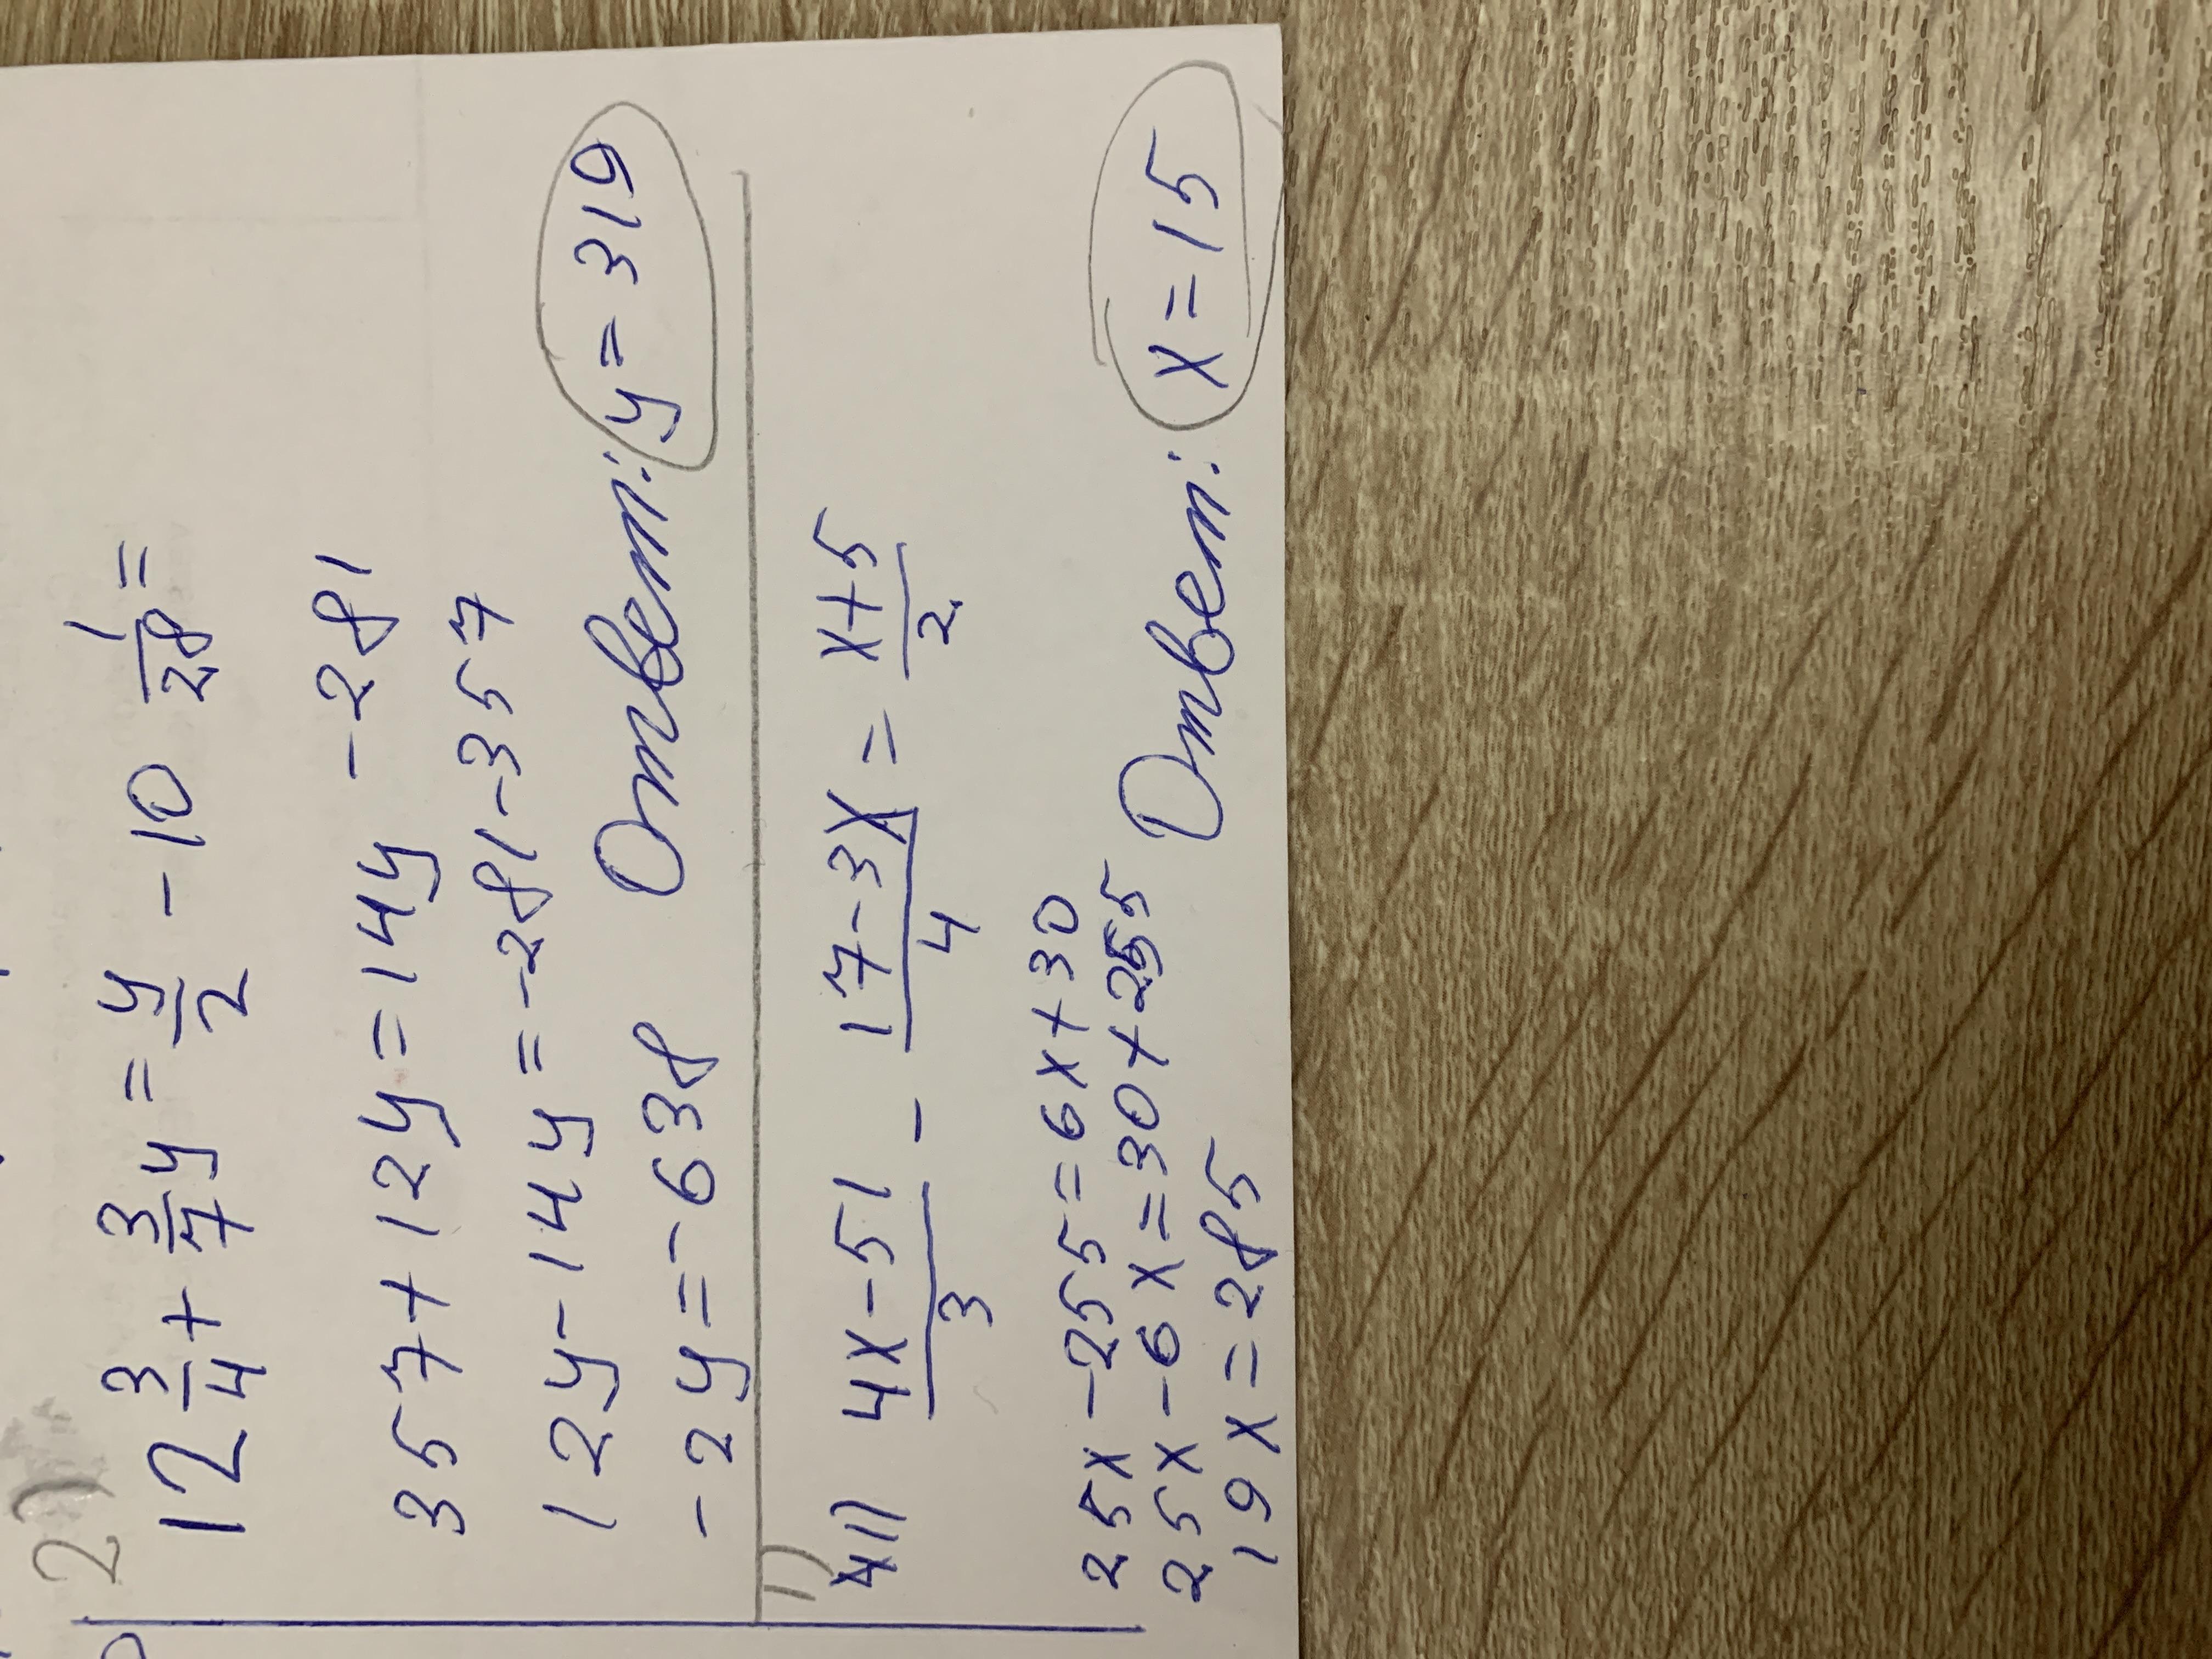 2)
12 3/4 + 3/7 y = y/2 - 10 1/28 =
357 + 12y = 14y - 281
12y - 14y = -281 - 357
-2y = -638 Ответ: y = 319
1)
4x-51/3 - 17-3x/4 = x+5/2
25x - 255 = 6x + 30
25x - 6x = 30 + 255
19x = 285 Ответ: x = 15